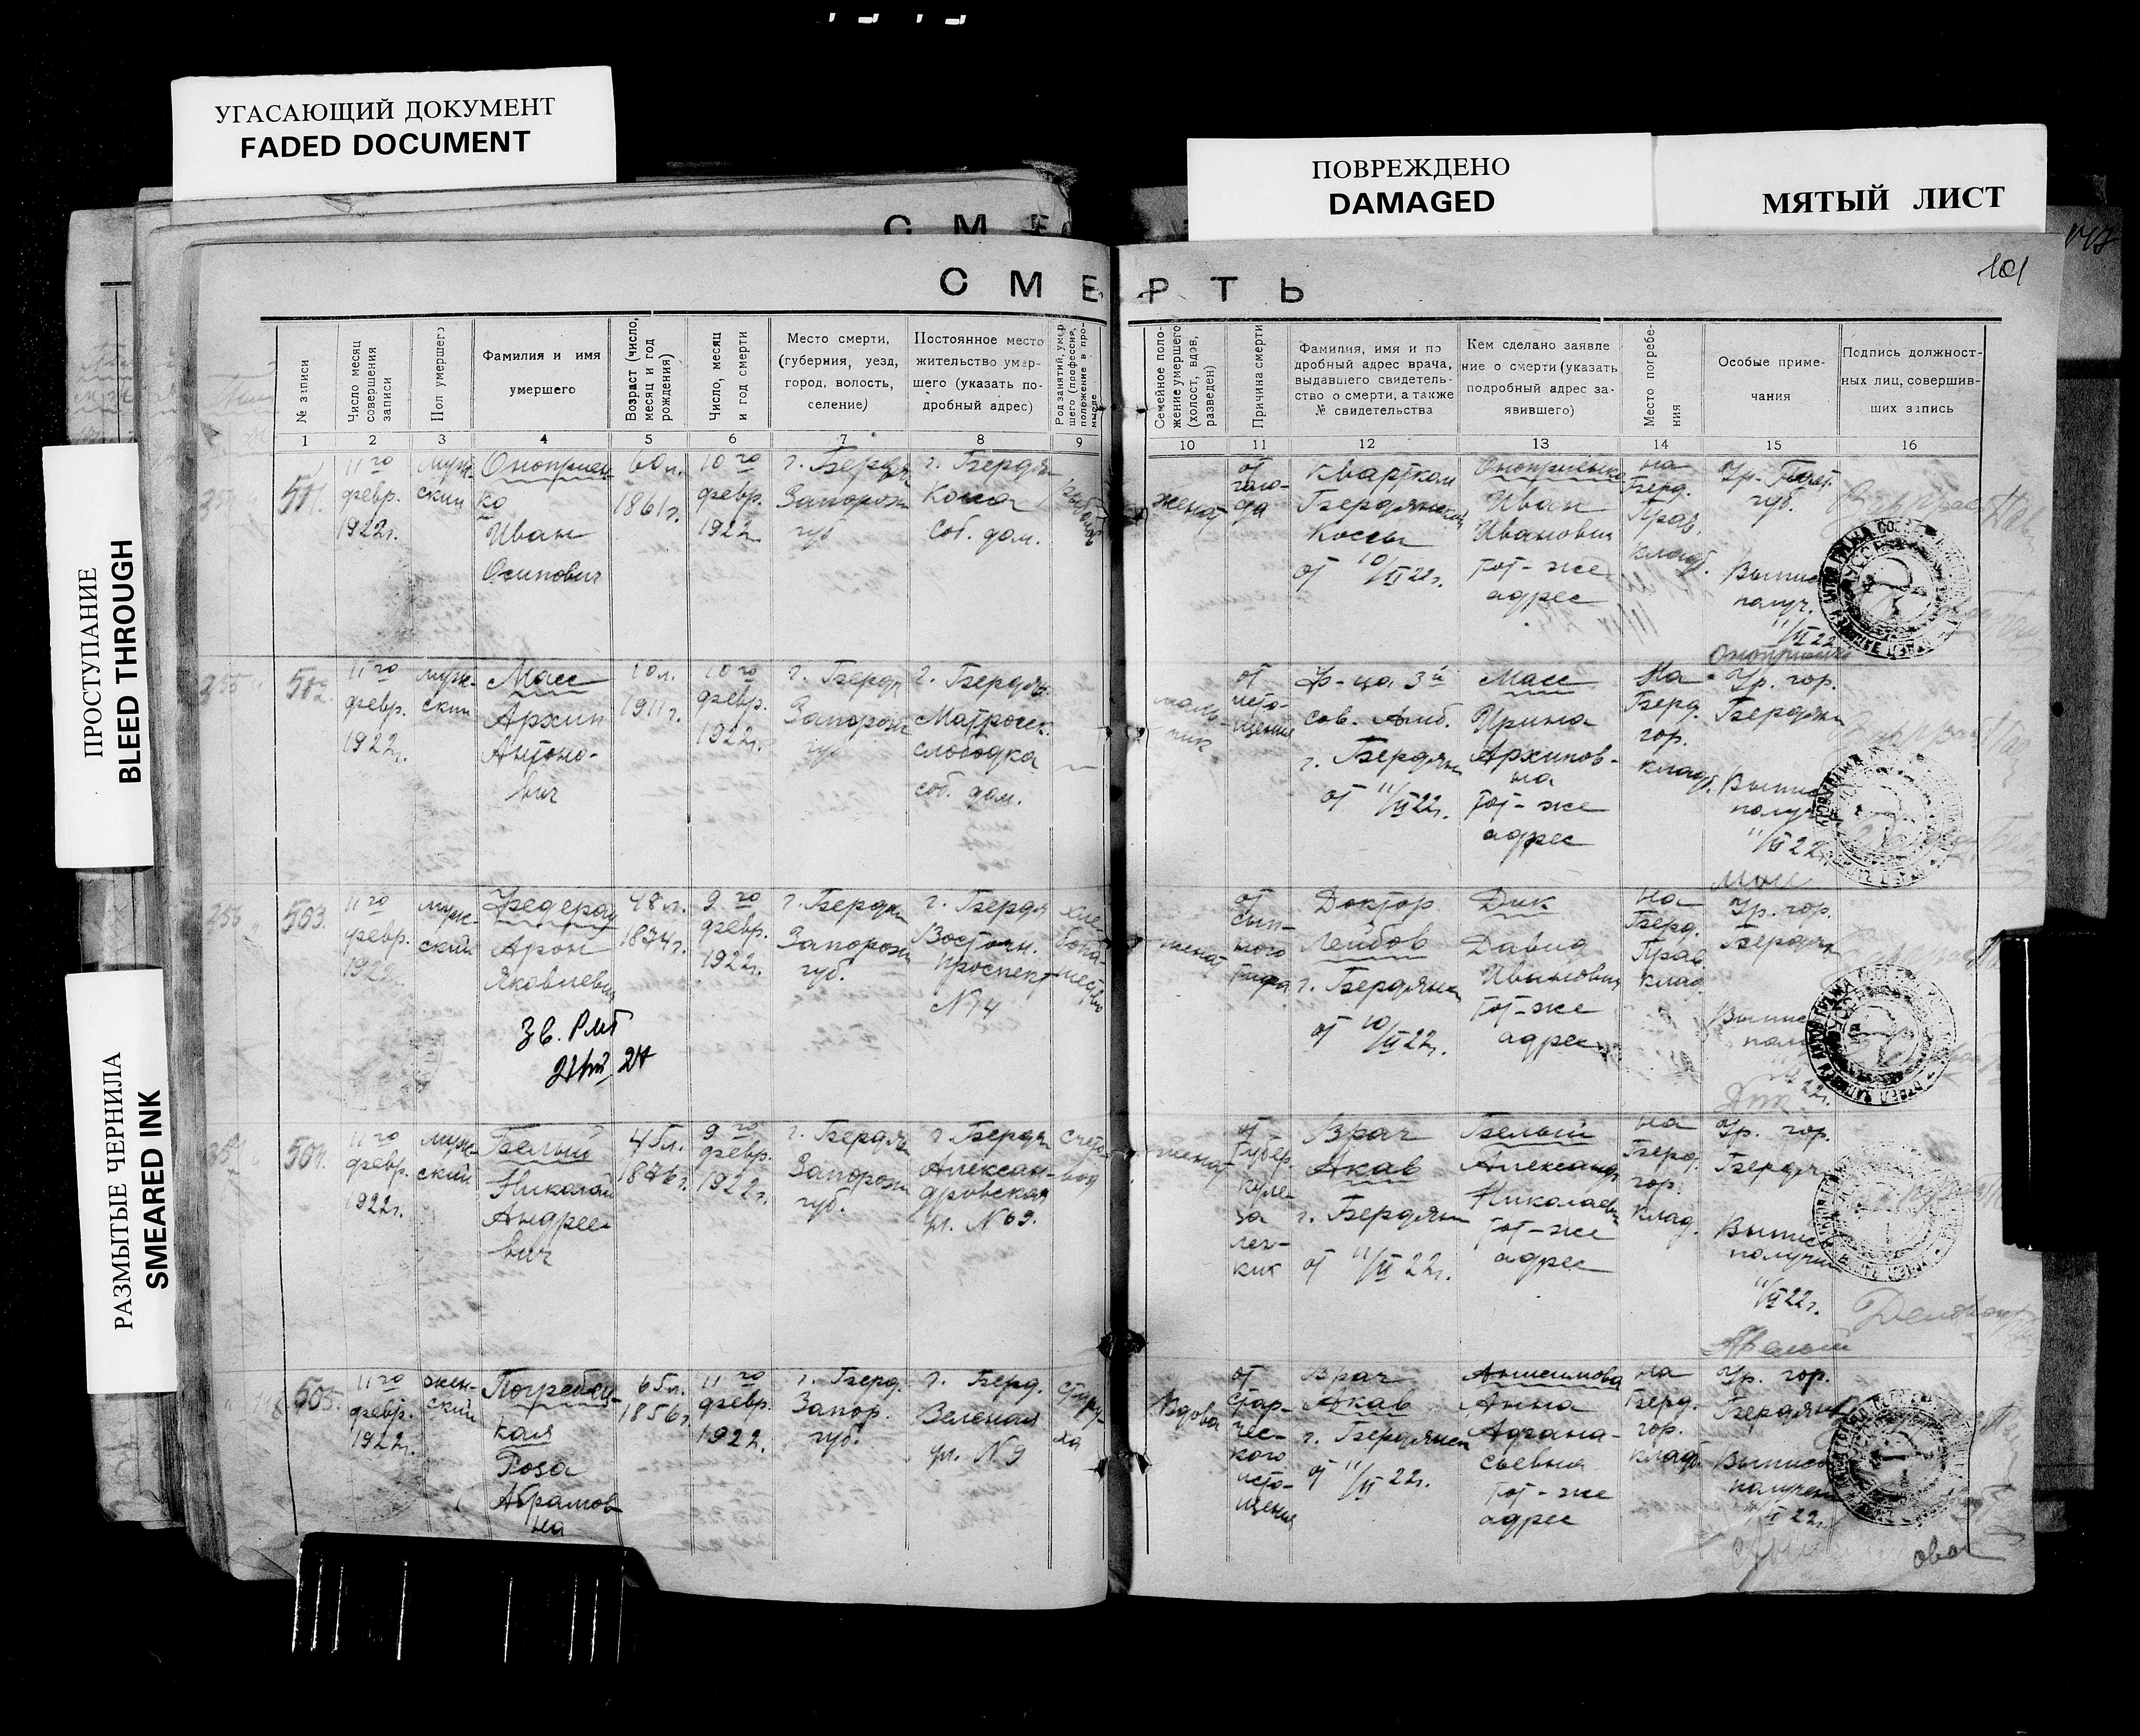 УГАСАЮЩИЙ ДОКУМЕНТ
FADED DOCUMENT
ПОВРЕЖДЕНО
DAMAGED
МЯТЫЙ ЛИСТ
ПРОСТУПАНИЕ
BLEED THROUGH
РАЗМЫТЫЕ ЧЕРНИЛА
SMEARED INK
СМЕРТЬ
101
№ записи
Число месяц совершения записи
Пол умершего
Фамилия и имя
умершего
Возраст (число, месяц и год рождения)
Число, месяц и год смерти
Место смерти,
(губерния, уезд,
город, волость,
селение)
Постоянное место
жительство умер-
шего (указать по-
дробный адрес)
Род занятий, умер
шего (профессия,
положение в про-
мысле
Семейное поло-
жение умершего
(холост, вдов,
разведен)
Причина смерти
Фамилия, имя и по
дробный адрес врача,
выдавшего свидетель-
ство о смерти, а также
№ свидетельства
Кем сделано заявле
ние о смерти (указать
подробный адрес за-
явившего)
Место погребе-
ния
Особые приме-
чания
Подпись должност-
ных лиц, совершив-
ших запись
1 2 3 4 5 6 7 8 9 10 11 12 13 14 15 16
501.
11го
февр.
1922г.
муж-
ский
Оноприен
ко
Иван
Осипович
60 л.
1861г.
10го
февр.
1922г.
г. Бердян
Запорож
губ
г. Бердян
Коса
соб. дом.
женат
от
голо-
да
Квартком
Бердянской
Косы
от 10/II 22г.
Оноприенко
Иван
Иванович
тот-же
адрес
на
Берд.
Прав.
кладб.
Ур. Полт.
губ.
Выпис
получ.
11/II 22
502.
11го
февр.
1922г.
муж-
ский
Масс
Архип
Антоно-
вич
10 л.
1911г.
10го
февр.
1922г.
г. Бердян
Запорож
губ
г. Бердян.
Матросск.
слободка
соб. дом.
маль-
чик
от
исто-
щения
Ф-ца 3й
сов. Амб.
г. Бердянск
от 11/II 22г.
Масс
Ирина
Архипов-
на
тот-же
адрес
На
Берд.
гор.
кладб.
Ур. гор.
Бердян
Выпис
получ
11/II 22г.
Масс
503.
11го
февр.
1922г.
муж-
ский
Федерау
Арон
Яковлевич
48 л.
1874г.
9го
февр.
1922г.
г. Бердян
Запорож
губ.
г. Бердя
Восточн.
проспект
№ 14
хле
бопа-
шество
женат
от
сып-
ного
тифа
Доктор
Лейбов
г. Бердянск
от 10/II 22г.
Дик
Давид
Иванович
тот-же
адрес
на
Берд.
Прав
клад.
Ур. гор.
Бердян
Выпис
полу
22г.
Дик
504.
11го
февр.
1922г.
муж-
ский
Белый
Николай
Андрее
вич
45 л.
1876г.
9го
февр.
1922г.
г. Бердян
Запорож
губ.
г. Бердян
Алексан-
дровская
ул. № 69.
счето-
вод
женат
от
Тубер-
куле-
за
лег-
ких
Врач
Акав
г. Бердянск
от 11/II 22г.
Белый
Александр
Николаевич
тот-же
адрес
на
Берд.
гор.
клад.
Ур. гор.
Бердян
Выпись
получил
11/II 22г.
505.
11го
февр.
1922г.
жен-
ский
Погребец-
кая
Роза
Абрамов
на
65 л.
1856г.
11го
февр.
1922.
г. Берд.
Запор.
губ.
г. Берд.
Зеленая
ул. № 9
стару-
ха
Вдова
от
стар-
чес-
кого
исто-
щения
Врач
Акав
г. Бердянск
от 11/II 22г.
Анисимова
Анна
Афана-
сьевна
тот-же
адрес
на
Берд.
гор.
кладб
Ур. гор.
Бердян
Выпись
получен
11/II 22г.